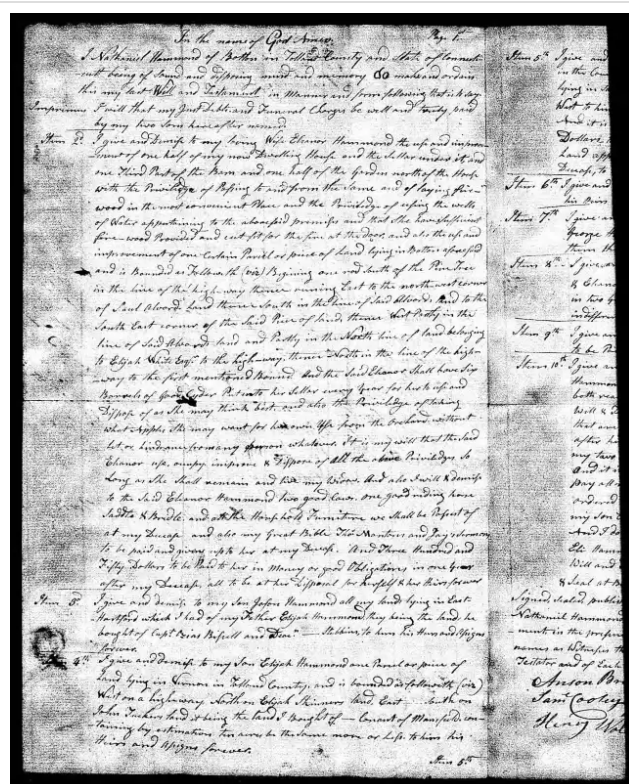 In the name of God Amen. Page 1st
I Nathaniel Hammond of Bolton in Tolland County and State of Connecti-
cutt being of Sound and disposing mind and memory do make and ordain
this my last Will and Testament in Manner and form following that is to say
Imprimis I will that my Just Debts and Funeral Charges be well and truly paid
by my two Sons hereafter named.
Item 2d. I give and Demise to my loving Wife Elanor Hammond the use and improve-
ment of one half of my now Dwelling House and the Sellar under it, and
one Third Part of the Barn and one half of the Garden north of the House
with the Priviledge of Passing to and from the Same and of laying fire-
wood in the most convenient Place and the Priviledge of using the wells
of Water appertaining to the abovesaid premises and that she have sufficient
fire-wood Provided and cut fit for the fire at the door, and also the use and
improvement of one Certain Parcel or piece of land lying in Bolton aforesaid
and is Bounded as Followeth (viz) Begining one rod South of the Pine Tree
in the line of the high way thence runing East to the northwest corner
of Saul Alvord Land thence South in the line of Said Alvord Land to the
South East corner of the Said Piece of land, thence West Partly in the
line of Said Alvords land and Partly in the North line of land belonging
to Elijah White Esqr to the highway, thence North in the line of the high-
way to the first mentioned Bound. And the Said Elanor Shall have Six
Barrels of Good Cyder Put into her Sellar every year for her to use and
Dispose of as She may think best, and also the Priviledge of taking
what Apples She may want for her own Use from the Orchard without
Let, or hindrance from any person whatever. It is my will that the said
Elanor use, occupy improve & Dispose of All the above Priviledges So
Long as She Shall remain and be my Widow. And also I will & demise
to the Said Elanor Hammond two good Cows. one good riding horse
Saddle & Bridle, and all the Household Furniture we Shall be Possest of
at my Decease and also my Great Bible The Mantons and Gays Sermons
to be paid and given up to her at my Decease. And Three Hundred and
Fifty Dollars to be Paid to her in Money or good Obligations in one year
after my Decease, all to be at her Disposal for herself & her Heirs forever
Item 3d I give and demise to my Son Jason Hammond all my lands lying in East
Hartford which I had of my Father Elijah Hammond, they being the land he
bought of Capt Ozias Bissell and Dean Stebbins, to him his Heirs and Assigns
forever.
4th I give and Demise to my Son Elijah Hammond one Parcel or piece of
Land lying in Vernon in Tolland County, and is bounded as followeth (viz)
West on a highway North on Elijah Skinners land, East South on
John Tuckers land it being the land I Bought of Conant of Mansfield con-
taining by estimation ten acres be the Same more or Less to him his
Heirs and Assigns forever.
Item 5th
Item 5th I give and
in the Coun
lying in So
West to him
And it is
Dollars
hand
Decease, to
Item 6th I give and
his Heirs
Item 7th I give
George H
them th
Item 8th I give
& Elanor
in two
indiffere
Item 9th I give an
to be P
Item 10th I give an
Hammon
both rea
Will &
that
after h
my two
And it i
Pay all
ordered
my Son
And I do
Elij Hamm
Will and
& Seal at B
Signed, Sealed publis
Nathaniel Hammond
-ment in the presen
names as Witnesses th
Testator and of Each
Anson Br
Saml Cooley
Henry